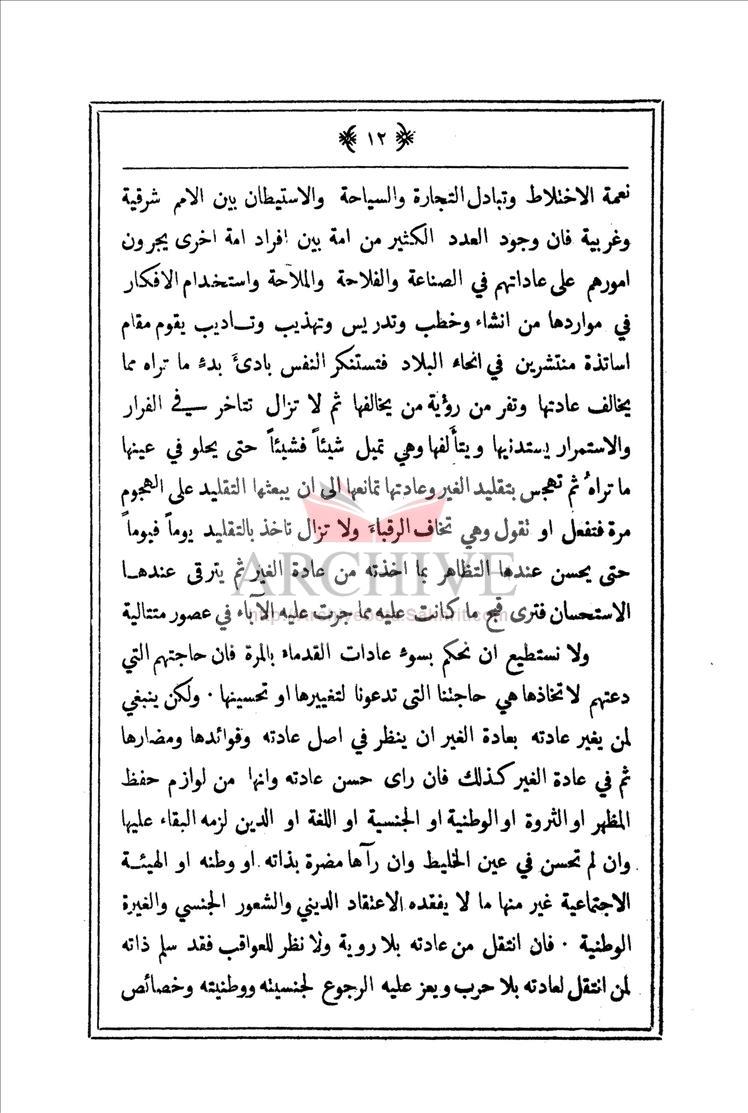 ١٢
نعمة الاختلاط وتبادل التجارة والسياحة والاستيطان بين الامم شرقية
وغربية فان وجود العدد الكثير من امة بين افراد امة اخرى يجرون
امورهم على عاداتهم في الصناعة والفلاحة والملاحة واستخدام الافكار
في مواردها من انشاء وخطب وتدريس وتهذيب وتاديب يقوم مقام
اساتذة منتشرين في انحاء البلاد فتستنكر النفس بادئَ بدء ما تراه مما
يخالف عادتها وتفر من رؤية من يخالفها ثم لا تزال تتاخر في الفرار
والاستمرار يستدنيها ويتألفها وهي تميل شيئاً فشيئاً حتى يحلو في عينها
ما تراهُ ثم تهجس بتقليد الغير وعادتها تمانعها الى ان يبعثها التقليد على الهجوم
مرة فتفعل او تقول وهي تخاف الرقباءَ ولا تزال تاخذ بالتقليد يوماً فيوماً
حتى يحسن عندها التظاهر بما اخذته من عادة الغير ثم يترقى عندها
الاستحسان فترى قبح ما كانت عليه مما جرت عليه الآباء في عصور متتالية
ولا نستطيع ان نحكم بسوء عادات القدماء بالمرة فان حاجتهم التي
دعتهم لاتخاذها هي حاجتنا التى تدعونا لتغييرها او تحسينها · ولكن ينبغي
لمن يغير عادته بعادة الغير ان ينظر في اصل عادته وفوائدها ومضارها
ثم في عادة الغير كذلك فان راى حسن عادته وانها من لوازم حفظ
المظهر او الثروة او الوطنية او الجنسية او اللغة او الدين لزمه البقاء عليها
وان لم تحسن في عين الخليط وان رآها مضرة بذاته او وطنه او الهيئة
الاجتماعية غير منها ما لا يفقده الاعتقاد الديني والشعور الجنسي والغيرة
الوطنية · فان انتقل من عادته بلا روية ولا نظر للعواقب فقد سلم ذاته
لمن انتقل لعادته بلا حرب ويعز عليه الرجوع لجنسيته ووطنيته وخصائص
ARCHIVE